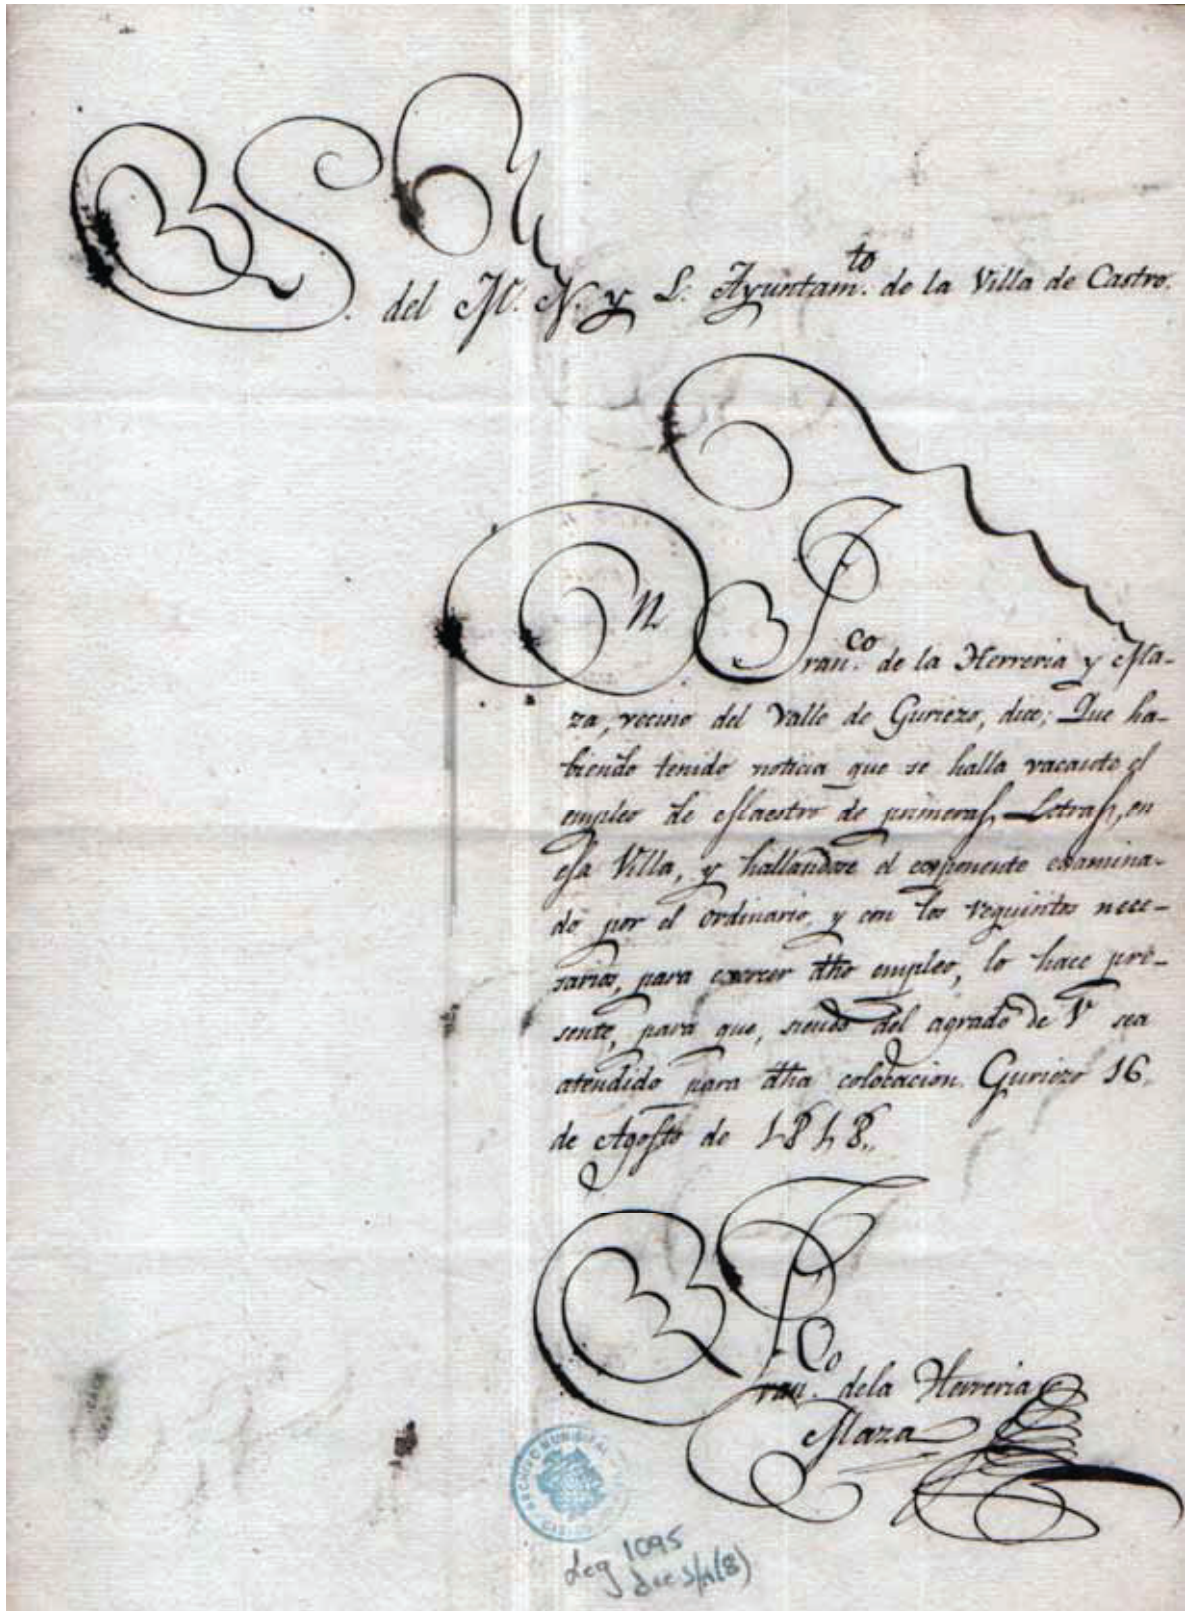 S.
del M. N. y L. Ayuntam.to de la Villa de Castro.
Dn Fran.co de la Herreria y Ma-
za, vecino del Valle de Guriezo, dice; Que ha-
biendo tenido noticia que se halla vacante el
empleo de Maestro de primeras Letras, en
esa Villa, y hallandose el exponente examina-
do por el Ordinario, y con los requisitos nece-
sarios, para exercer dho empleo, lo hace pre-
sente, para que, siendo del agrado de V sea
atendido para dha colocacion. Guriezo 16,
de Agosto de 1818.,
Fran.co dela Herreria
Maza
ARCHIVO MUNICIPAL
Leg 1095
doc (8)